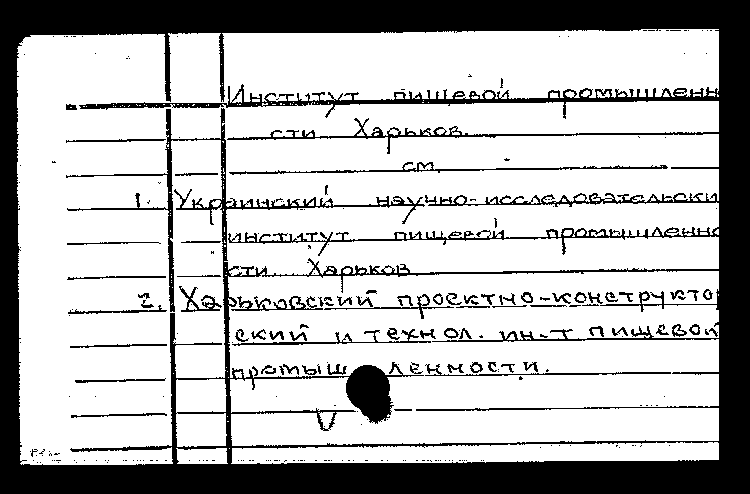 Институт пищевой промышленн
сти Харьков.
см.
1. Украинский научно-исследовательски
институт пищевой промышленно
сти Харьков
2. Харьковский проектно-конструктор
ский и технол. ин-т пищевой
промышленности.
V